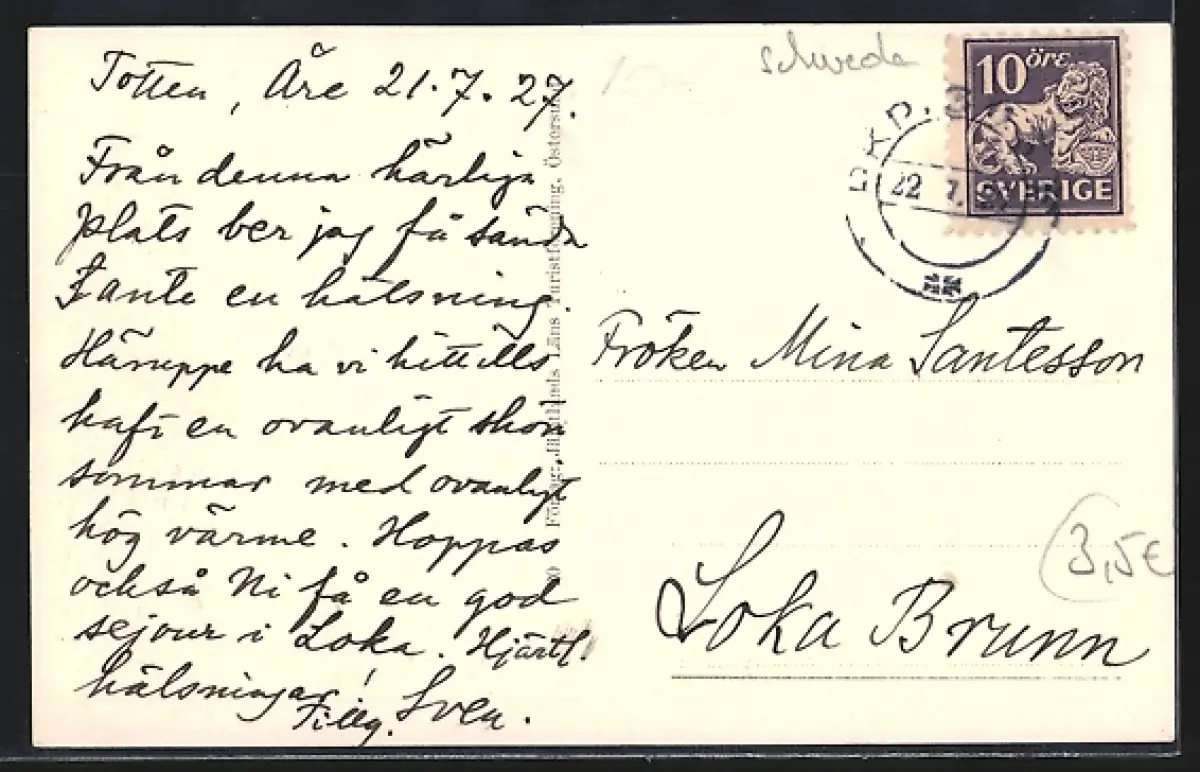 Totten, Åre 21.7.27.
Från denna härliga
plats ber jag få sända
Tante en hälsning.
Häruppe ha vi hittills
haft en ovanligt skön
sommar med ovanligt
hög värme. Hoppas
också Ni få en god
sejour i Loka. Hjärtl.
hälsningar!
Tillg. Sven.
Förlag: Jämtlands Läns Turistförening, Östersund
schweden
10 öre
SVERIGE
22 7.
Fröken Mina Santesson
Loka Brunn
3,5€